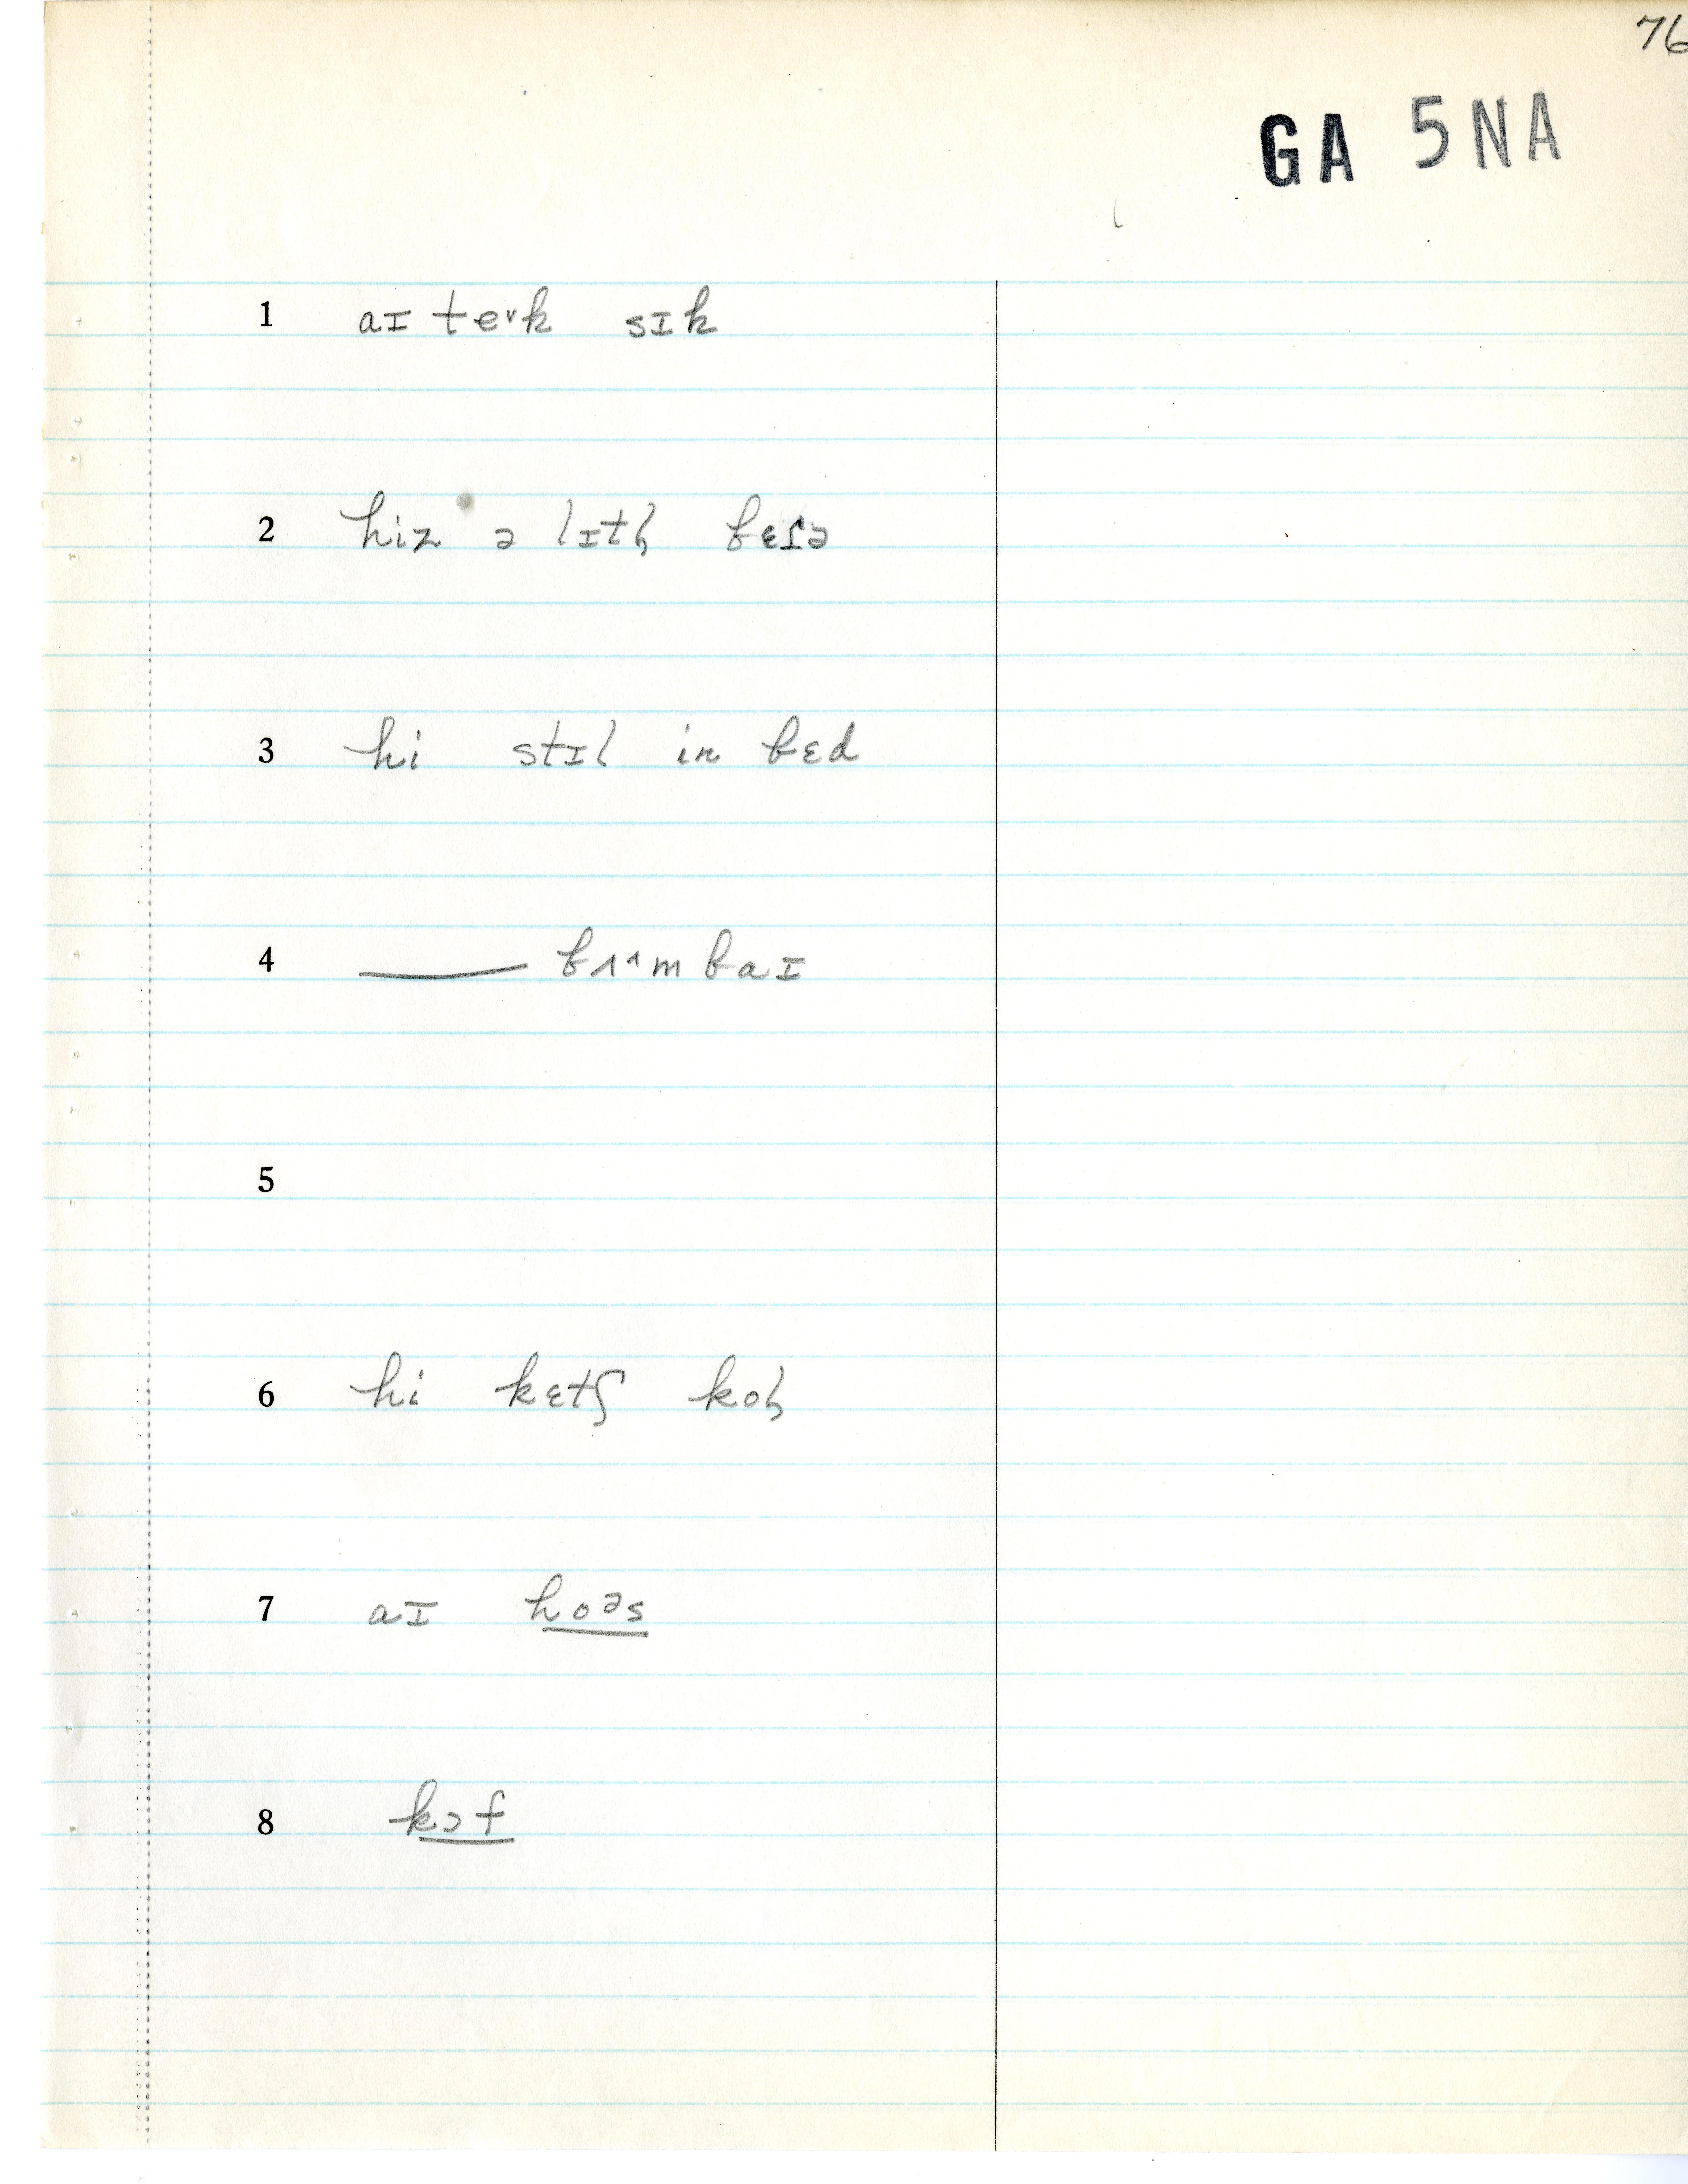 76
GA 5NA
1 aɪ teᵛk sɪk
2 hiz ə lɪtɫ bɛɾə
3 hi stɪl in bɛd
4 ——— bʌᶺm baɪ
5
6 hi kɛtʃ koɫ
7 aɪ hoᵊs
8 kɔf